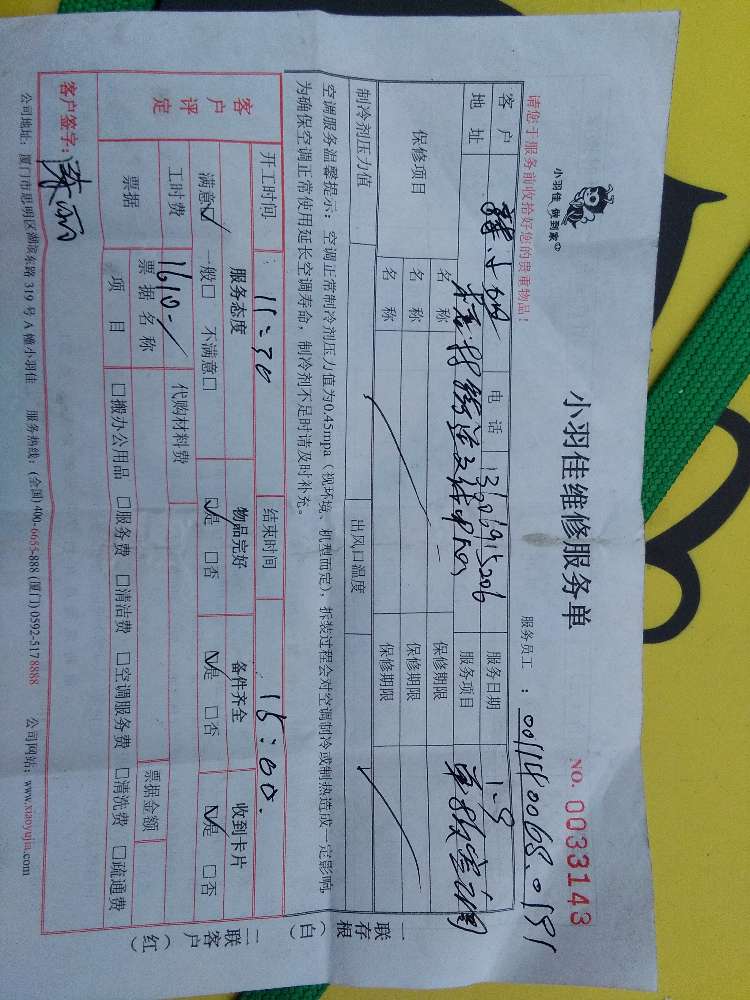 小羽佳 做到家
小羽佳维修服务单
NO. 0033143
请您于服务前收拾好您的贵重物品！
服务员工：
客户 电话 13606915206 服务日期 1.9
地址 服务项目
保修项目 名称 保修期限
名称 保修期限
名称 保修期限
制冷剂压力值 出风口温度
空调服务温馨提示：空调正常制冷剂压力值为0.45mpa（视环境、机型而定），拆装过程会对空调制冷或制热造成一定影响，
为确保空调正常使用延长空调寿命，制冷剂不足时请及时补充。
开工时间：11:30 结束时间 15:00.
客户评定 服务态度 物品完好 备件齐全 收到卡片
满意☑ 一般□ 不满意□ ☑是 □否 ☑是 □否 ☑是 □否
工时费 1610.- 代购材料费
票据 票据名称 票据金额
项目 □搬办公用品 □服务费 □清洁费 □空调服务费 □清洗费 □疏通费
客户签字：
公司地址：厦门市思明区湖滨东路 319 号 A 幢小羽佳 服务热线：(全国) 400-6655-888 (厦门) 0592-517 8888 公司网站：www.xiaoyujia.com
一存根联（白）
二客户联（红）